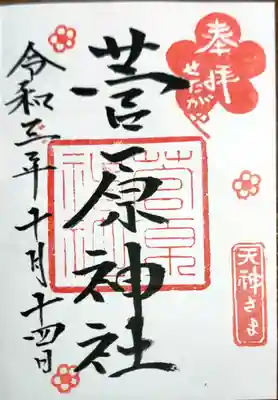 奉拝
せたがや
菅原神社
菅原
神社
天神さま
令和三年十月十四日